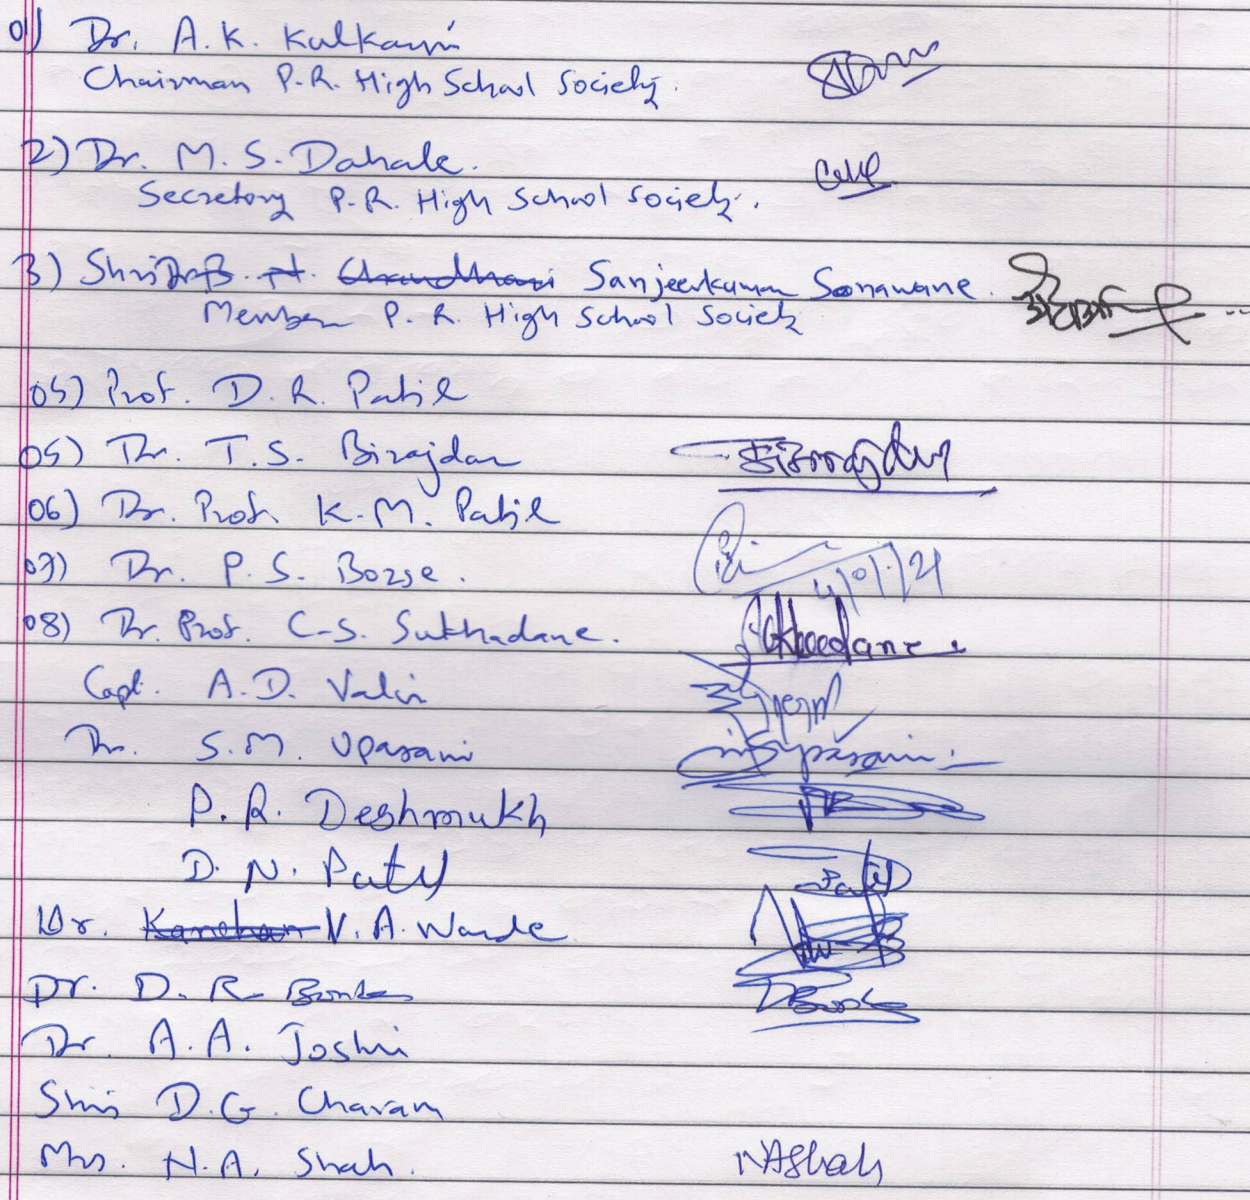 01) Dr. A. K. Kulkarni
Chairman P.R. High School Society.
2) Dr. M. S. Dahale.
Secretory P.R. High School Society.
3) Shri Dr B. H. Chaudhari Sanjeevkumar Sonawane.
Member P. R. High School Society
05) Prof. D. R. Patil
05) Dr. T.S. Birajdar Birajdar
06) Dr. Prof. K.M. Patil
07) Dr. P. S. Borse. 4/01/21
08) Dr. Prof. C.S. Sukhadane. Sukhadane.
Capt. A.D. Valvi
Dr. S.M. Upasani Upasani
P. R. Deshmukh
D. N. Patil Patil
Dr. Kanchan V. A. Warde
Dr. D. R.
Dr. A.A. Joshi
Shri D.G. Chavan
Mrs. N.A. Shah. NAShah